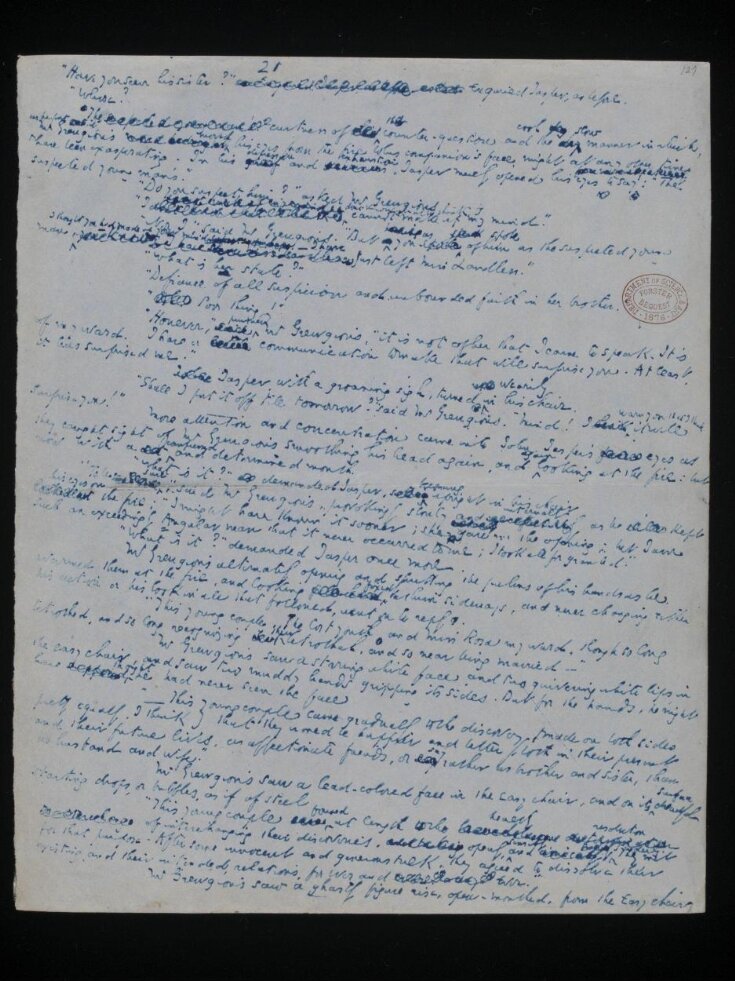 21
127
"Have you seen his sister?" enquired Jasper, as before.
"Whose?"
The curtness of the counter-question, and the cool slow manner in which,
as he put it, Mr Grewgious moved his eyes from the fire to his companion's face, might at any other time
have been exasperating. In his depression and exhaustion, Jasper merely opened his eyes to say: "The
suspected young man's."
"Do you suspect him?" asked Mr Grewgious.
"I cannot make up my mind."
"Nor I," said Mr Grewgious. "But as you spoke of him as the suspected young
man, I thought you had made up your mind. I have just left Miss Landless."
"What is her state?"
"Defiance of all suspicion, and unbounded faith in her brother."
"Poor thing!"
"However," pursued Mr Grewgious, "it is not of her that I came to speak. It is
of my ward. I have a communication to make that will surprise you. At least,
it has surprised me."
Jasper, with a groaning sigh, turned wearily in his chair.
"Shall I put it off till tomorrow?" said Mr Grewgious. "Mind! I warn you, that I think it will
surprise you!"
More attention and concentration came into John Jasper's eyes as
they caught sight of Mr Grewgious smoothing his head again, and again looking at the fire: but
now with a compressed and determined mouth.
"What is it?" demanded Jasper, becoming upright in his chair.
"To be sure," said Mr Grewgious, provokingly slowly and internally, as he kept
his eyes on the fire: "I might have known it sooner; she gave me the opening; but I am
such an exceedingly Angular man that it never occurred to me; I took all for granted."
"What is it?" demanded Jasper once more.
Mr Grewgious, alternately opening and shutting the palms of his hands as he
warmed them at the fire, and looking fixedly at him sideways, and never changing either
his action or his look in all that followed, went on to reply.
"This young couple, the lost youth and Miss Rosa, my ward, though so long
betrothed, and so long recognizing their betrothal, and so near being married—"
Mr Grewgious saw a staring white face and two quivering white lips in
the easy chair, and saw two muddy hands gripping its sides. But for the hands, he might
have thought he had never seen the face.
"—This young couple came gradually to the discovery (made on both sides
pretty equally, I think) that they would be happier and better, both in their present
and their future lives, as affectionate friends, or say rather as brother and sister, than
as husband and wife."
Mr Grewgious saw a lead-colored face in the easy chair, and on its surface dreadful
starting drops, or bubbles, as if of steel.
"This young couple found at length the healthy resolution
of interchanging their discoveries, openly, sensibly and tenderly. They met
for that purpose. After some innocent and generous talk, they agreed to dissolve their
existing, and their intended, relations, for ever and ever."
Mr Grewgious saw a ghastly figure rise, open-mouthed, from the easy chair,
DEPARTMENT OF SCIENCE & ART
FORSTER
BEQUEST
1876